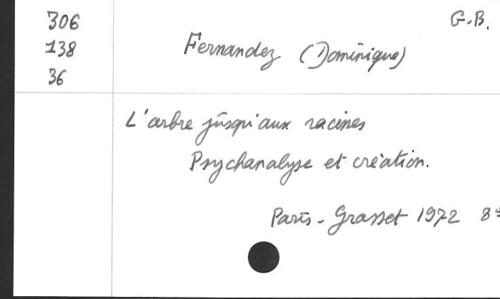 306
G.B.
138
Fernandez (Dominique)
36
L'arbre jusqu'aux racines
Psychanalyse et création.
Paris - Grasset 1972 8°